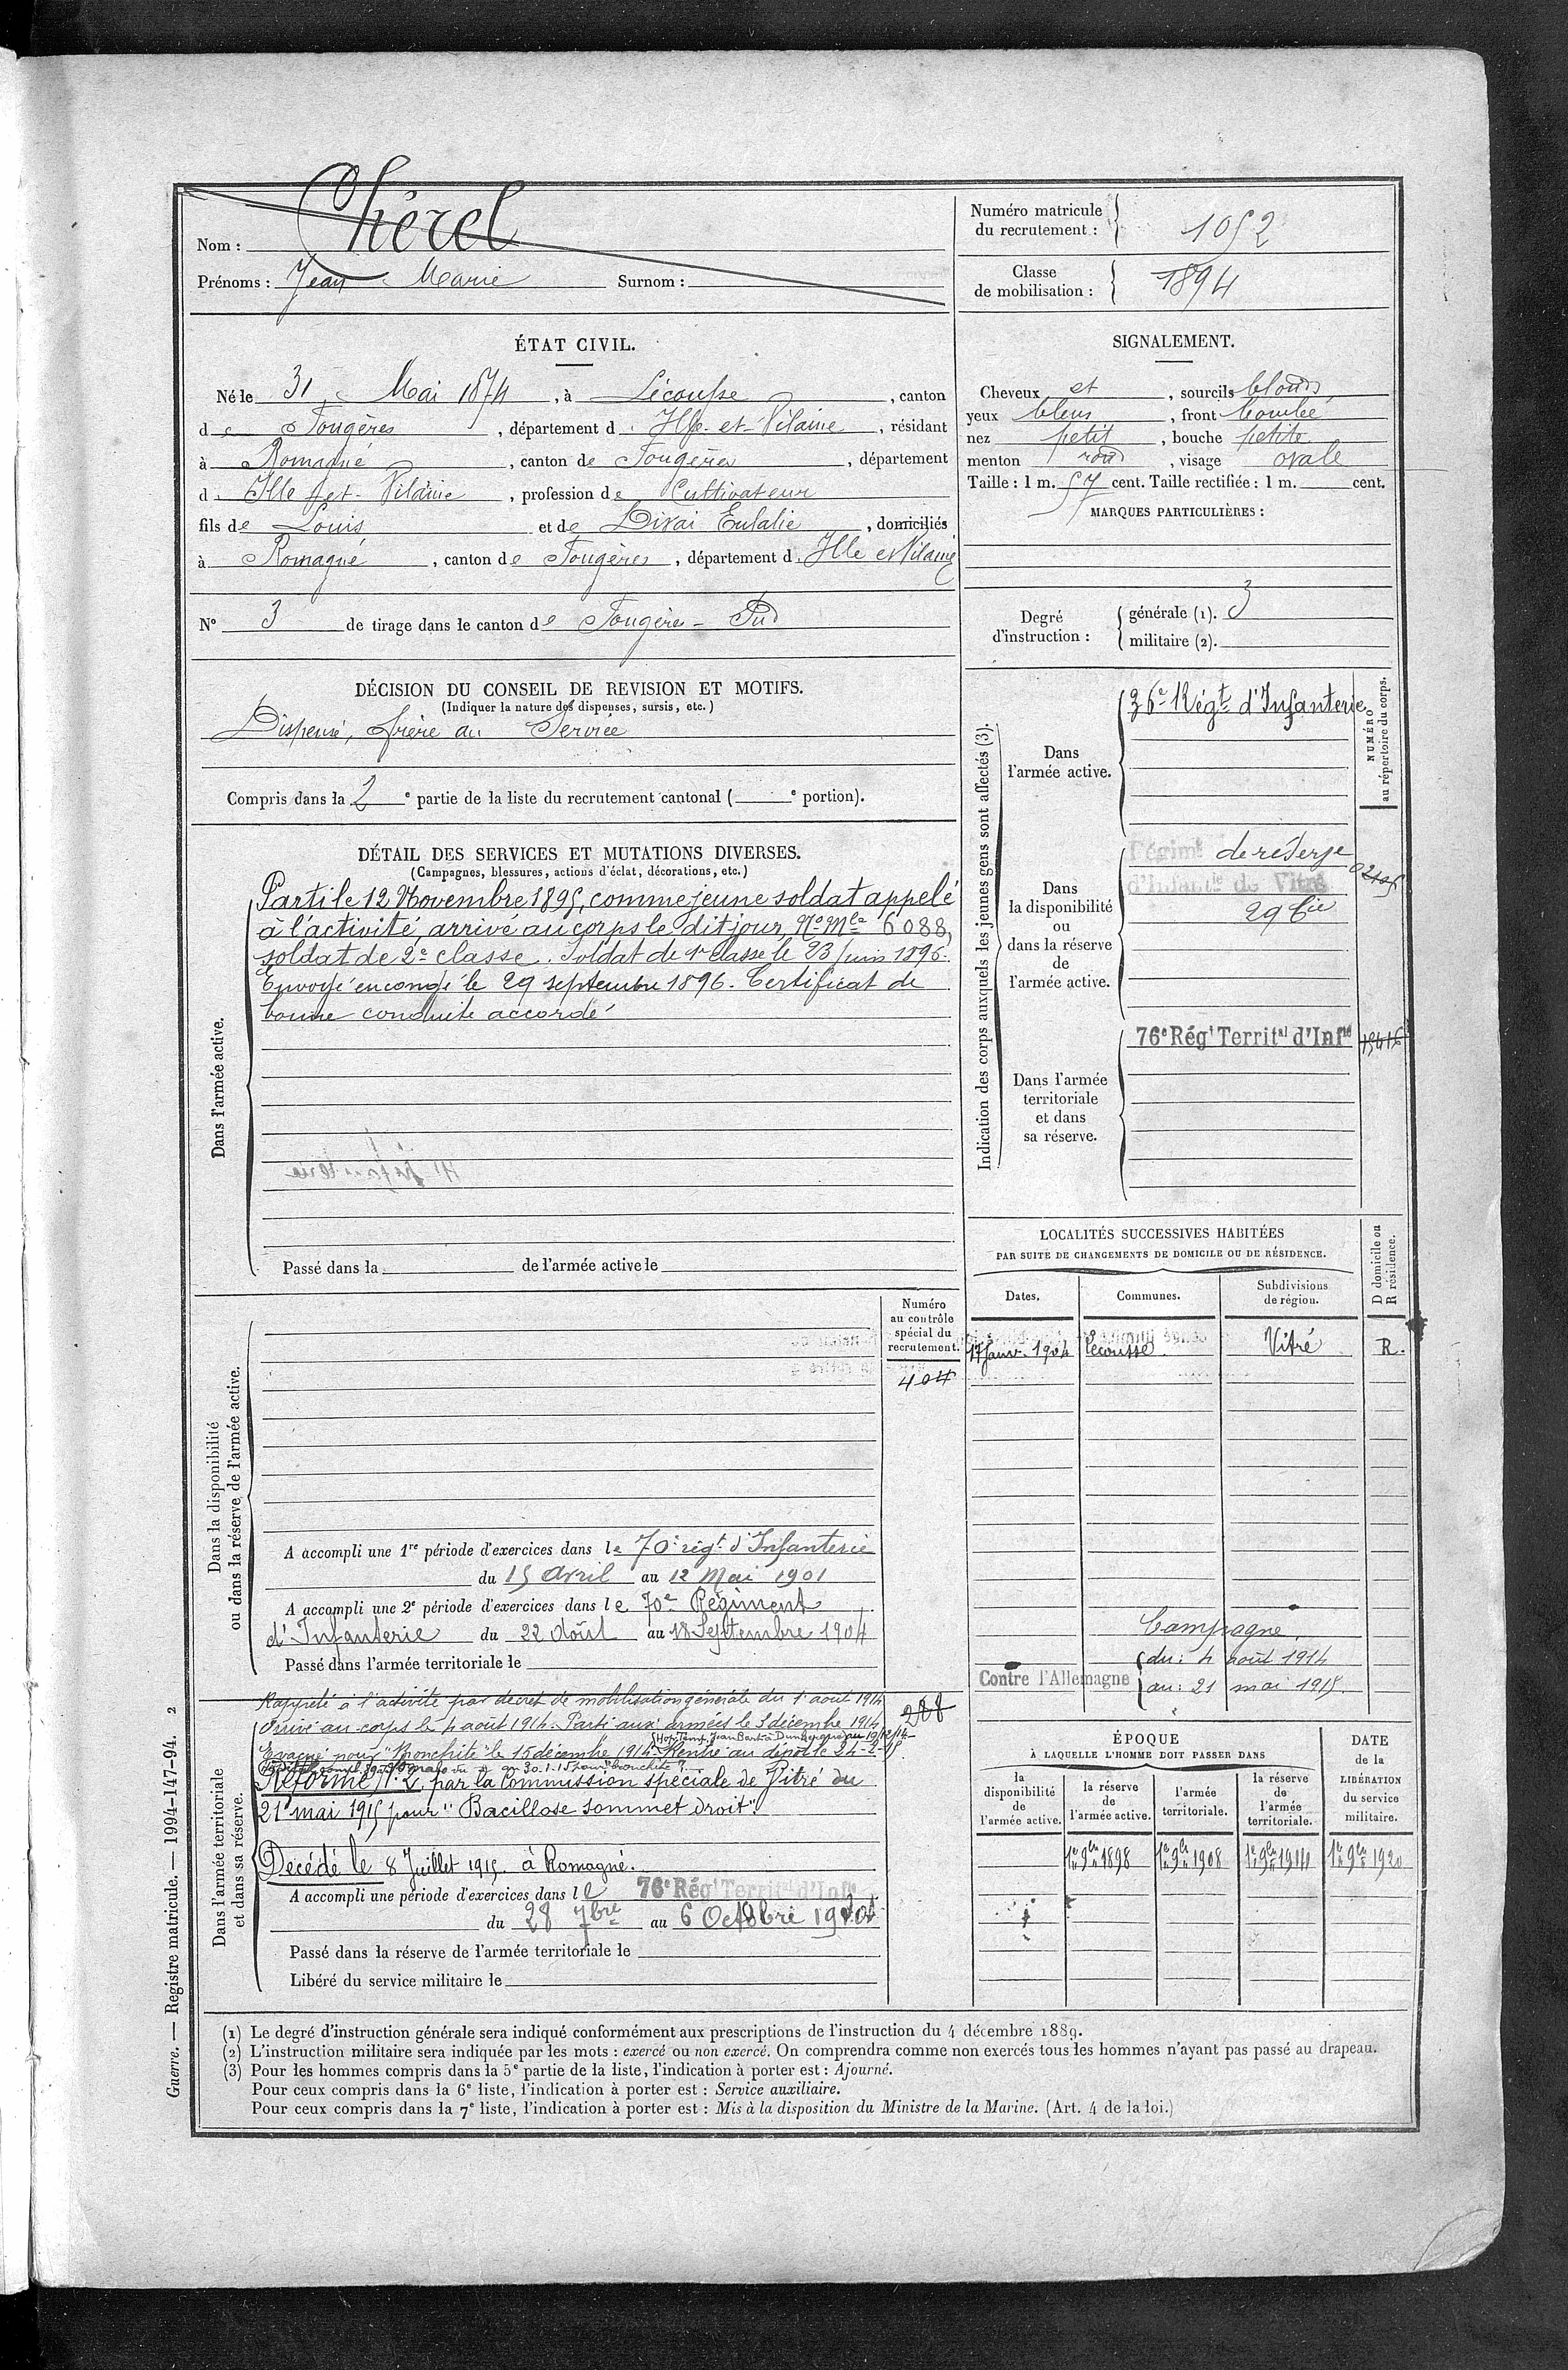 Nom : Chérel
Prénoms : Jean Marie Surnom :
Numéro matricule
du recrutement : 1052
Classe
de mobilisation : 1894
ÉTAT CIVIL.
Né le 31 Mai 1874, à Lécousse, canton
de Fougères, département d'Ille-et-Vilaine, résidant
à Romagné, canton de Fougères, département
d' Ille-et-Vilaine, profession de Cultivateur
fils de Louis et de Divai Eulalie, domiciliés
à Romagné, canton de Fougères, département d' Ille et Vilaine
N° 3 de tirage dans le canton de Fougères - Sud
SIGNALEMENT.
Cheveux et, sourcils blonds
yeux bleus, front bombé
nez petit, bouche petite
menton rond, visage ovale
Taille : 1 m. 57 cent. Taille rectifiée : 1 m. cent.
MARQUES PARTICULIÈRES :
Degré
d'instruction :
générale (1). 3
militaire (2).
DÉCISION DU CONSEIL DE REVISION ET MOTIFS.
(Indiquer la nature des dispenses, sursis, etc.)
Dispensé, frère au Service
Compris dans la 2e partie de la liste du recrutement cantonal ( e portion).
DÉTAIL DES SERVICES ET MUTATIONS DIVERSES.
(Campagnes, blessures, actions d'éclat, décorations, etc.)
Dans l'armée active.
Parti le 12 Novembre 1895, comme jeune soldat appelé
à l'activité, arrivé au corps le dit jour, No Mle 6088,
soldat de 2e classe. Soldat de 1e classe le 23 Juin 1896.
Envoyé en congé le 29 septembre 1896. Certificat de
bonne conduite accordé
Passé dans la de l'armée active le
Indication des corps auxquels les jeunes gens sont affectés (3).
NUMÉRO
au répertoire du corps.
Dans
l'armée active.
36e Régt d'Infanterie
Dans
la disponibilité
ou
dans la réserve
de
l'armée active.
Régimt de réserve
d'Infantie de Vitré
29 Cie
Dans l'armée
territoriale
et dans
sa réserve.
76e Régt Territal d'Infie
LOCALITÉS SUCCESSIVES HABITÉES
PAR SUITE DE CHANGEMENTS DE DOMICILE OU DE RÉSIDENCE.
D domicile ou
R résidence.
Dates. Communes. Subdivisions
de région.
17 Janv. 1904 Lécousse Vitré R.
Campagne
Contre l'Allemagne
du : 4 août 1914
au : 21 mai 1915.
Dans la disponibilité
ou dans la réserve de l'armée active.
Numéro
au contrôle
spécial du
recrutement.
404
A accompli une 1re période d'exercices dans le 70e régt d'Infanterie
du 15 Avril au 12 Mai 1901
A accompli une 2e période d'exercices dans le 70e Régiment
d'Infanterie du 22 Août au 18 Septembre 1904
Passé dans l'armée territoriale le
Dans l'armée territoriale
et dans sa réserve.
Rappelé à l'activité par décret de mobilisation générale du 1er août 1914
Arrivé au corps le 4 août 1914. Parti aux armées le 3 décembre 1914
Evacué pour "Bronchite" le 15 décembre 1914. Rentré au dépôt le 24-2-15.
Réformé N° 2, par la Commission spéciale de Vitré du
21 mai 1915 pour "Bacillose sommet droit".
Décédé le 8 Juillet 1915 à Romagné.
A accompli une période d'exercices dans le 76e Régt Territal d'Infie
du 28 7bre au 6 Octobre
Passé dans la réserve de l'armée territoriale le
Libéré du service militaire le
288
ÉPOQUE
À LAQUELLE L'HOMME DOIT PASSER DANS
DATE
de la
LIBÉRATION
du service
militaire.
la
disponibilité
de
l'armée active.
la réserve
de
l'armée active.
l'armée
territoriale.
la réserve
de
l'armée
territoriale.
1er 9bre 1898 1er 9bre 1908 1er 9bre 1914 1er 9bre 1920
(1) Le degré d'instruction générale sera indiqué conformément aux prescriptions de l'instruction du 4 décembre 1889.
(2) L'instruction militaire sera indiquée par les mots : exercé ou non exercé. On comprendra comme non exercés tous les hommes n'ayant pas passé au drapeau.
(3) Pour les hommes compris dans la 5e partie de la liste, l'indication à porter est : Ajourné.
Pour ceux compris dans la 6e liste, l'indication à porter est : Service auxiliaire.
Pour ceux compris dans la 7e liste, l'indication à porter est : Mis à la disposition du Ministre de la Marine. (Art. 4 de la loi.)
Guerre. — Registre matricule. — 1994-147-94. 2